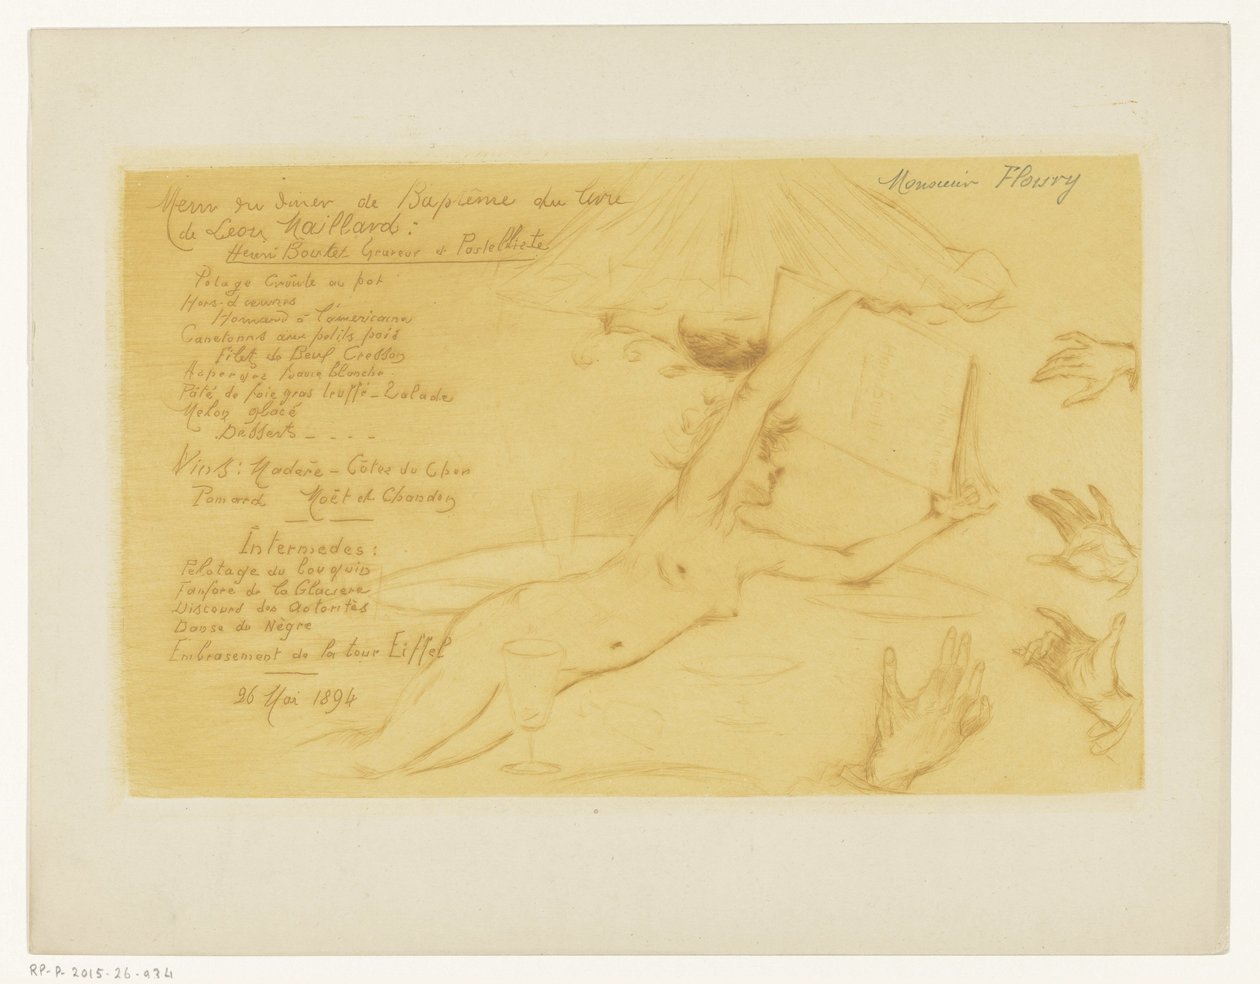 Menu du Diner de Baptême du livre
de Léon Maillard:
Henri Boutet Graveur et Pastelliste
Potage Croûte au pot
Hors-d'œuvres
Homard à l'américaine
Canetons aux petits pois
Filet de Beuf Cresson
Asperges Sauce blanche
Pâté de foie gras truffé - Salade
Melon glacé
Desserts - - - -
Vins: Madère - Côtes du Cher
Pomard Moët et Chandon
Intermedes:
Pelotage du bouquin
Fanfare de la Glaciere
Discours des Autorités
Danse du Nègre
Embrasement de la tour Eiffel
26 Mai 1894
Monsieur Floury
RP-P-2015-26-934